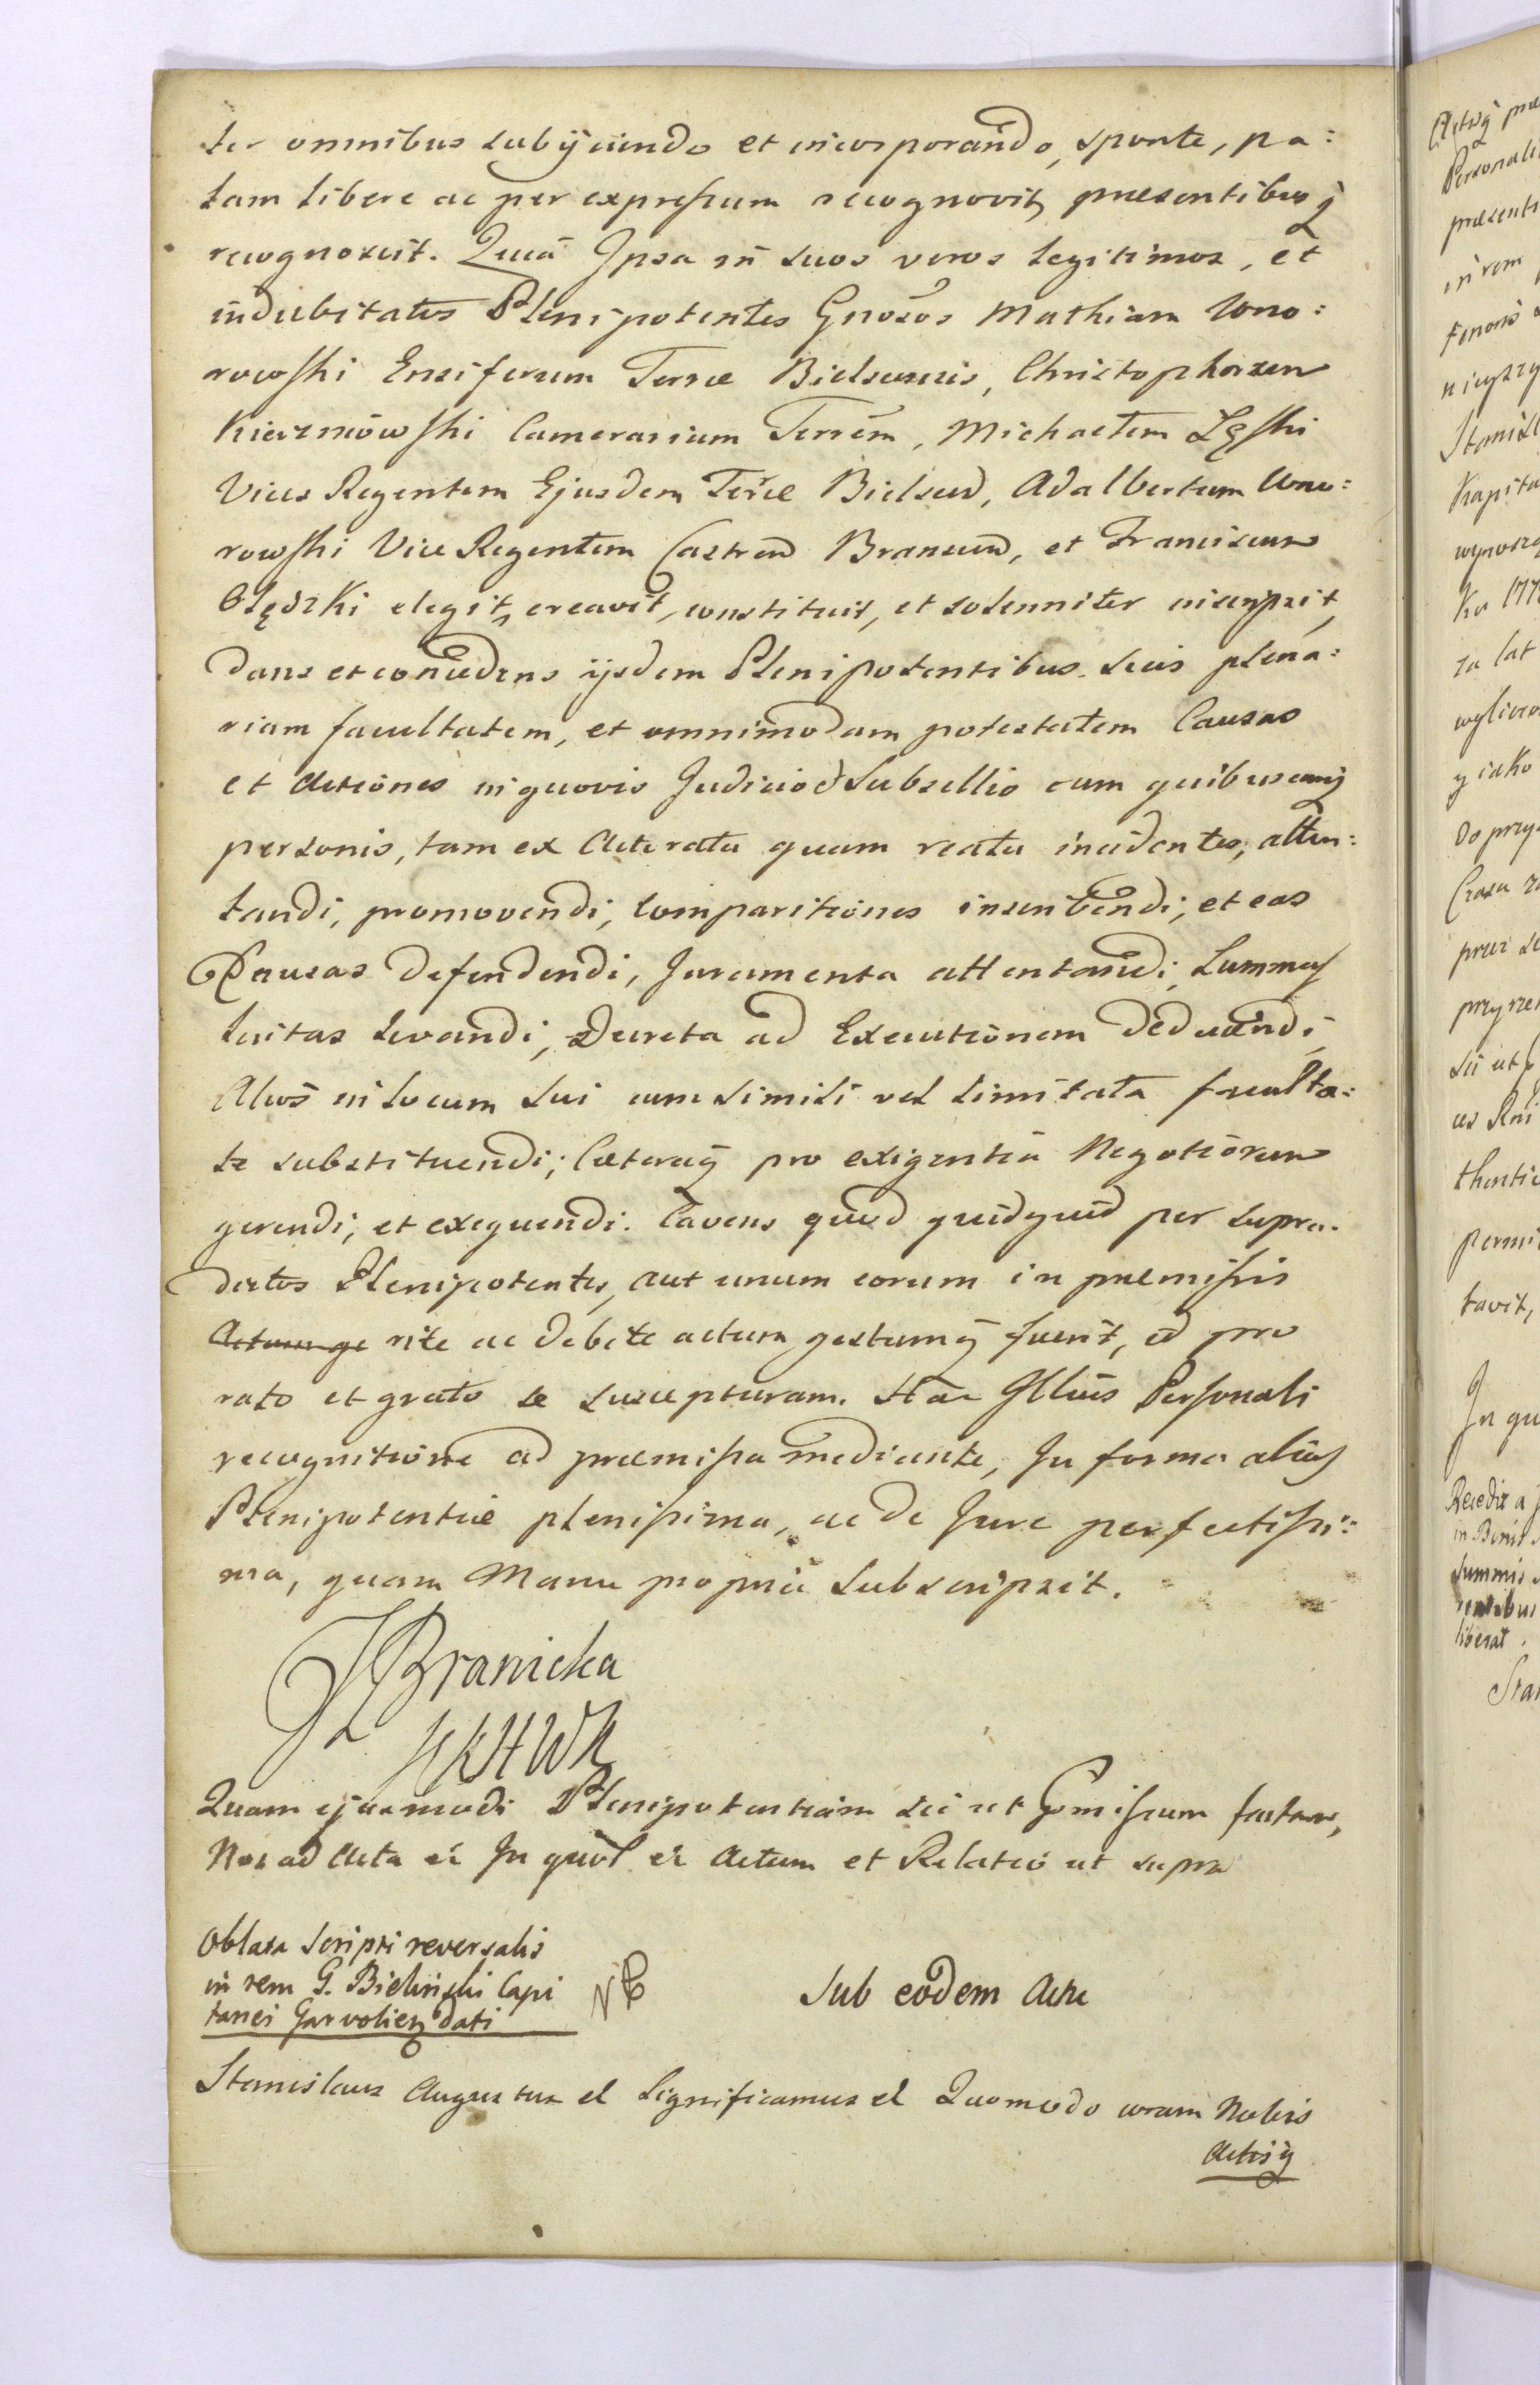 ter omnibus subijciendo et incorporando, sponte, pa:
lam libere ac per expressum recognovit, præsentibusq
recognoscit. Quia Ipsa in suos veros legitimos, et
indubitatos Plenipotentes Gnosos Mathiam Wno:
rowski Ensiferum Terræ Bielscensis, Christophorum
Kierznowski Camerarium Terrem, Michaelem Łęski
Vices Regentem Ejusdem Terræ Bielscen, Adalbertum Wno:
rowski Vice Regentem Castren Branscen, et Franciscum
Olędzki elegit, creavit, constituit, et solenniter inscripsit,
dans et concedens ijsdem Plenipotentibus suis plena:
riam facultatem, et omnimodam potestatem Causas
et Actiones in quovis Judicio et Subsellio cum quibuscunq
personis, tam ex Actoratu quam reatu incidentes, atten:
tandi, promovendi, Comparitiones inscribendi, et eas
Causas defendendi, Juramenta attentandi, Summas
luitas levandi, Decreta ad Executionem deducendi,
Alios in locum sui cum simili vel limitata faculta:
te substituendi; Cæteraq pro exigentia Negotiorum
gerendi, et exequendi. Cavens quod quidquid per supra
dictos Plenipotentes, aut unum eorum in præmissis
Actum ge rite ac debite actum gestumq fuerit, id pro
rato et grato se suscepturam. Hac Illius Personali
recognitione ad præmissa mediante, In forma alias
Plenipotentiæ plenissima, ac de Jure perfectissi:
ma, quam Manu propria subscripsit.
J Branicka
KKHWK
Quam ejusmodi Plenipotentiam sic ut præmissum factam,
Nos ad Acta et In quor et Actum et Relatio ut supra
Oblata Scripti reversalis
in rem G. Bielinski Capi
tanei Garvolien dati
NB
Sub eodem Actu
Stanislaus Augustus et Significamus et Quomodo coram Nobis
Actisq